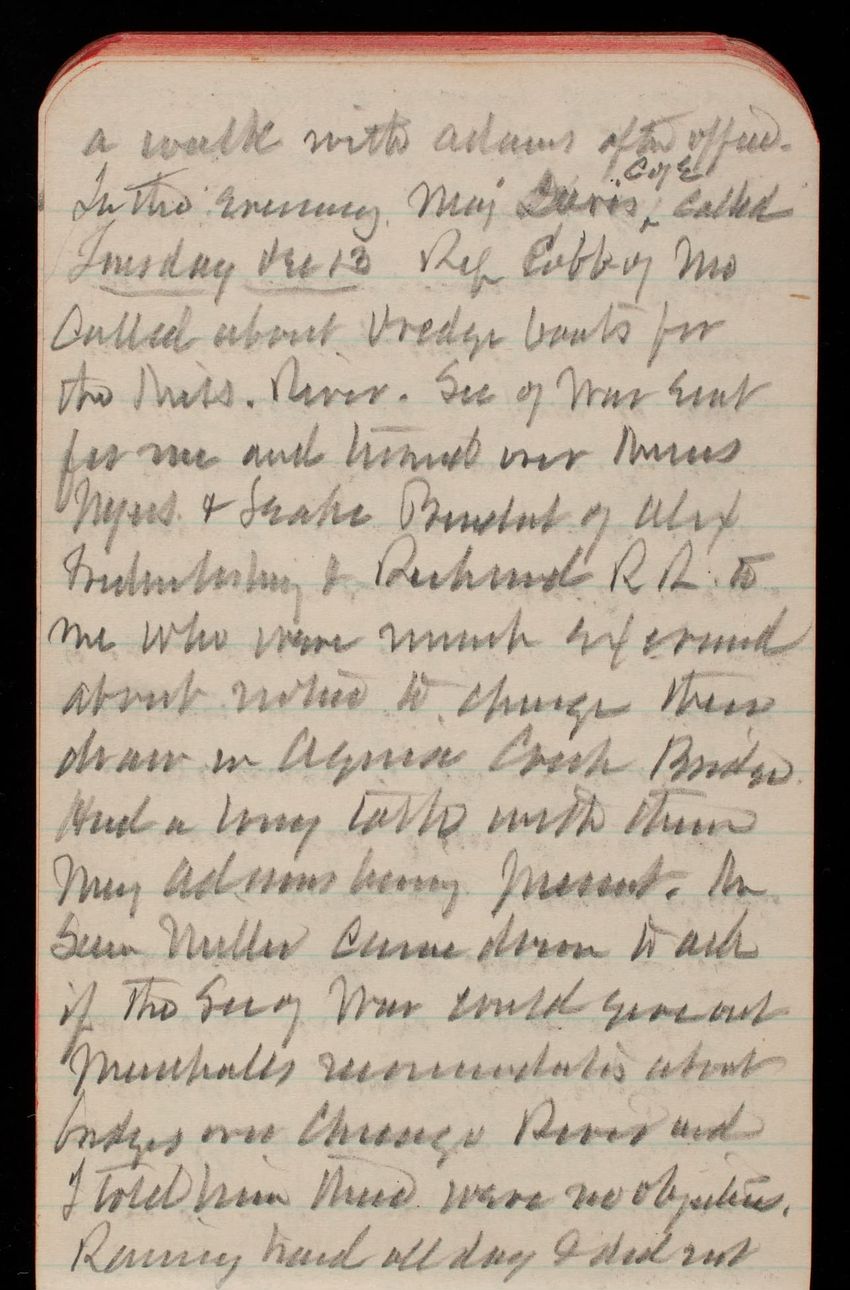 a walk with Adams after office.
In the evening Maj Davis, C of E called
Tuesday Dec 13 Rep Cobb of Mo
Called about dredge boats for
the Miss. River. Sec of War sent
for me and turned over
Myers & President of Alex
Fredericksburg & Richmond R R. to
me who were much exercised
about notice to change their
draw in Aquia Creek Bridge.
Had a long talk with them
Maj Adams being present. Mr
Miller came down to ask
if the Sec of War could give out
Marshalls recommendatis about
bridges over Chicago River and
I told him there were no objections.
Raining hard all day I did not